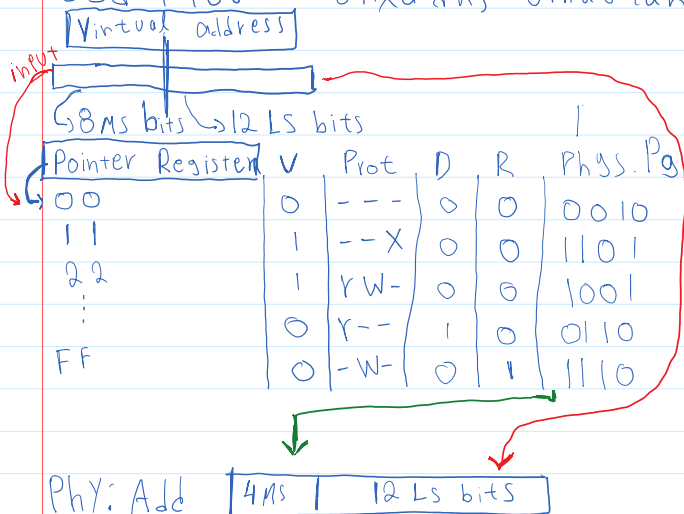 Virtual address
input
8 Ms bits 12 LS bits
Pointer Register V Prot D R Phys. Pg
00 0 --- 0 0 0010
11 1 --X 0 0 1101
22 1 rW- 0 0 1001
⋮ 0 r-- 1 0 0110
FF 0 -W- 0 1 1110
PhY: Add 4 Ms 12 Ls bits